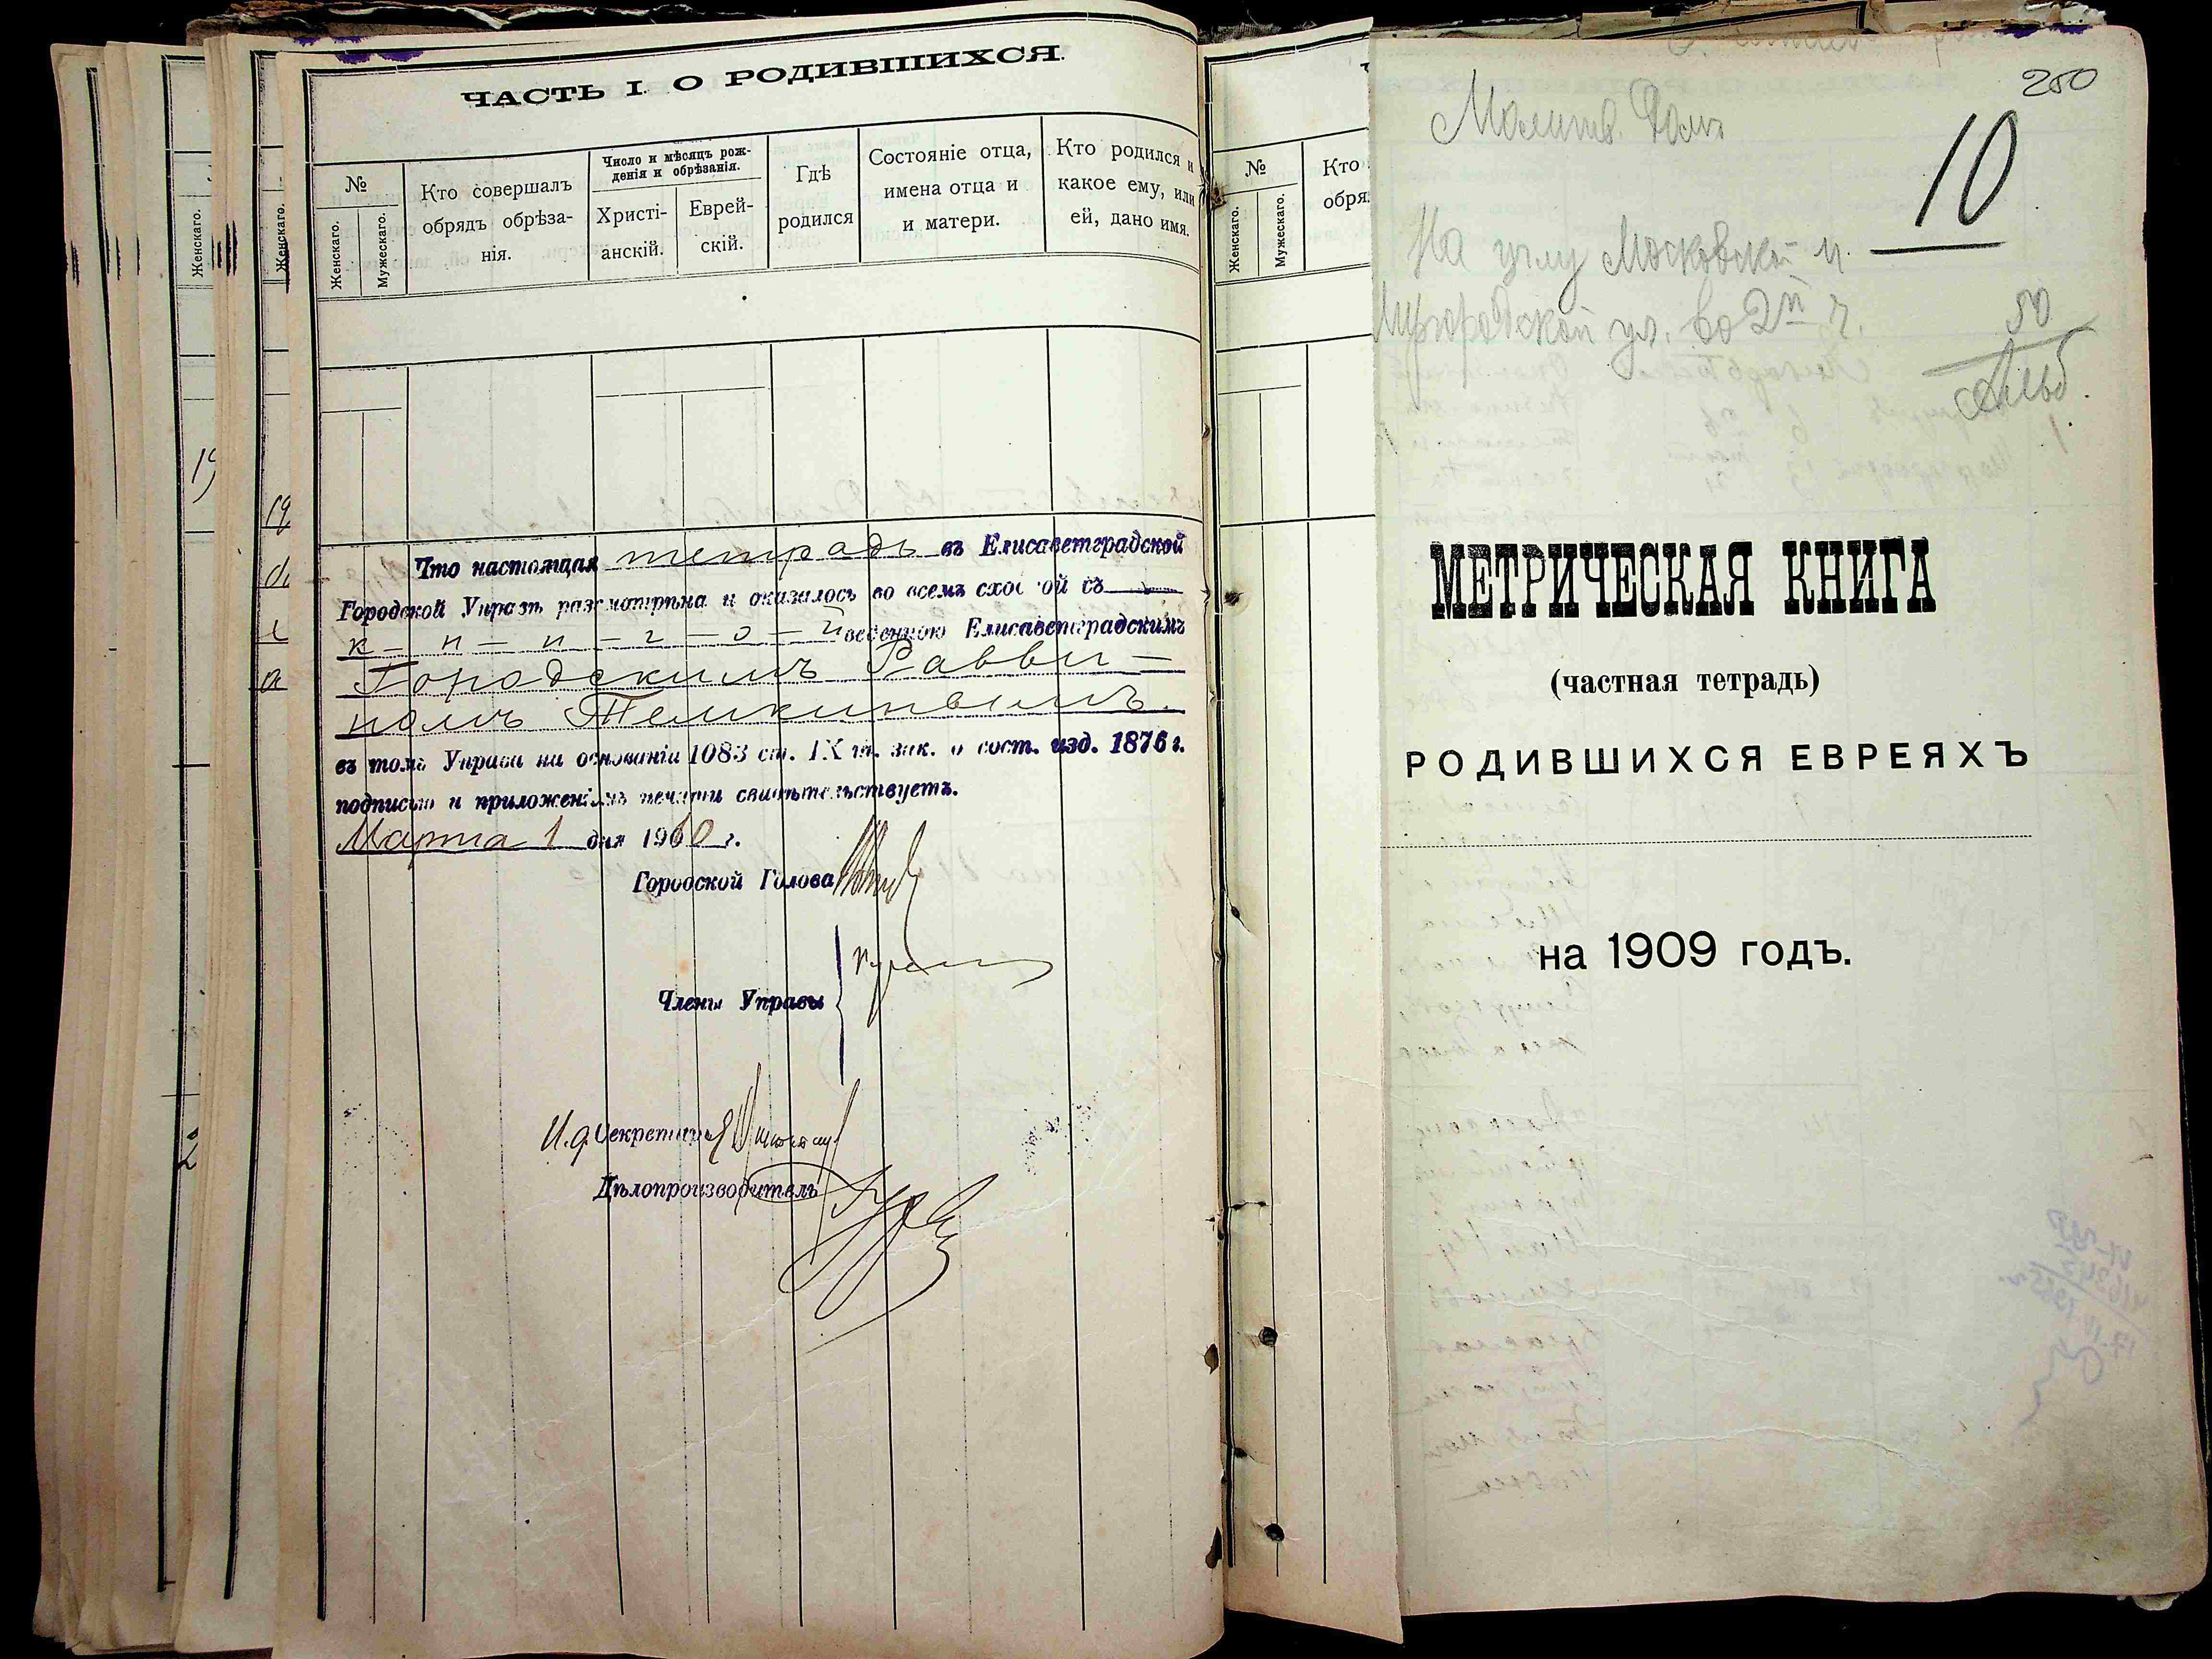 ЧАСТЬ I. О РОДИВШИХСЯ.
№
Женскаго.
Мужескаго.
Кто совершалъ
обрядъ обрѣза-
нія.
Число и мѣсяцъ рож-
денія и обрѣзанія.
Христі-
анскій.
Еврей-
скій.
Гдѣ
родился
Состояніе отца,
имена отца и
и матери.
Кто родился и
какое ему, или
ей, дано имя.
Что настоящая тетрадь въ Елисаветградской
Городской Управѣ разсмотрѣна и оказалось во всемъ сход ой съ
к - н - и - г - о - й веденною Елисаветградскимъ
Городскимъ Равви-
номъ Темкинымъ.
въ томъ Управа на основаніи 1083 ст. IX т. зак. о сост. изд. 1876 г.
подписью и приложеніемъ печати свидѣтельствуетъ.
Марта 1 дня 1910 г.
Городской Голова
Члены Управы
И. д. Секретаря
Дѣлопроизводитель
Женскаго.
Женскаго.
№
Женскаго.
Мужескаго.
Кто
обря
250
Молитв. Домъ
10
На углу Московской и
Миргородской ул. во 2й ч.
50
МЕТРИЧЕСКАЯ КНИГА
(частная тетрадь)
РОДИВШИХСЯ ЕВРЕЯХЪ
на 1909 годъ.